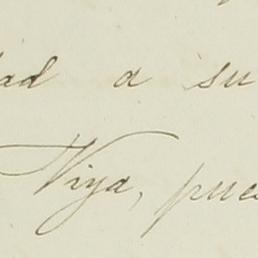 ad a su
Niya, pue